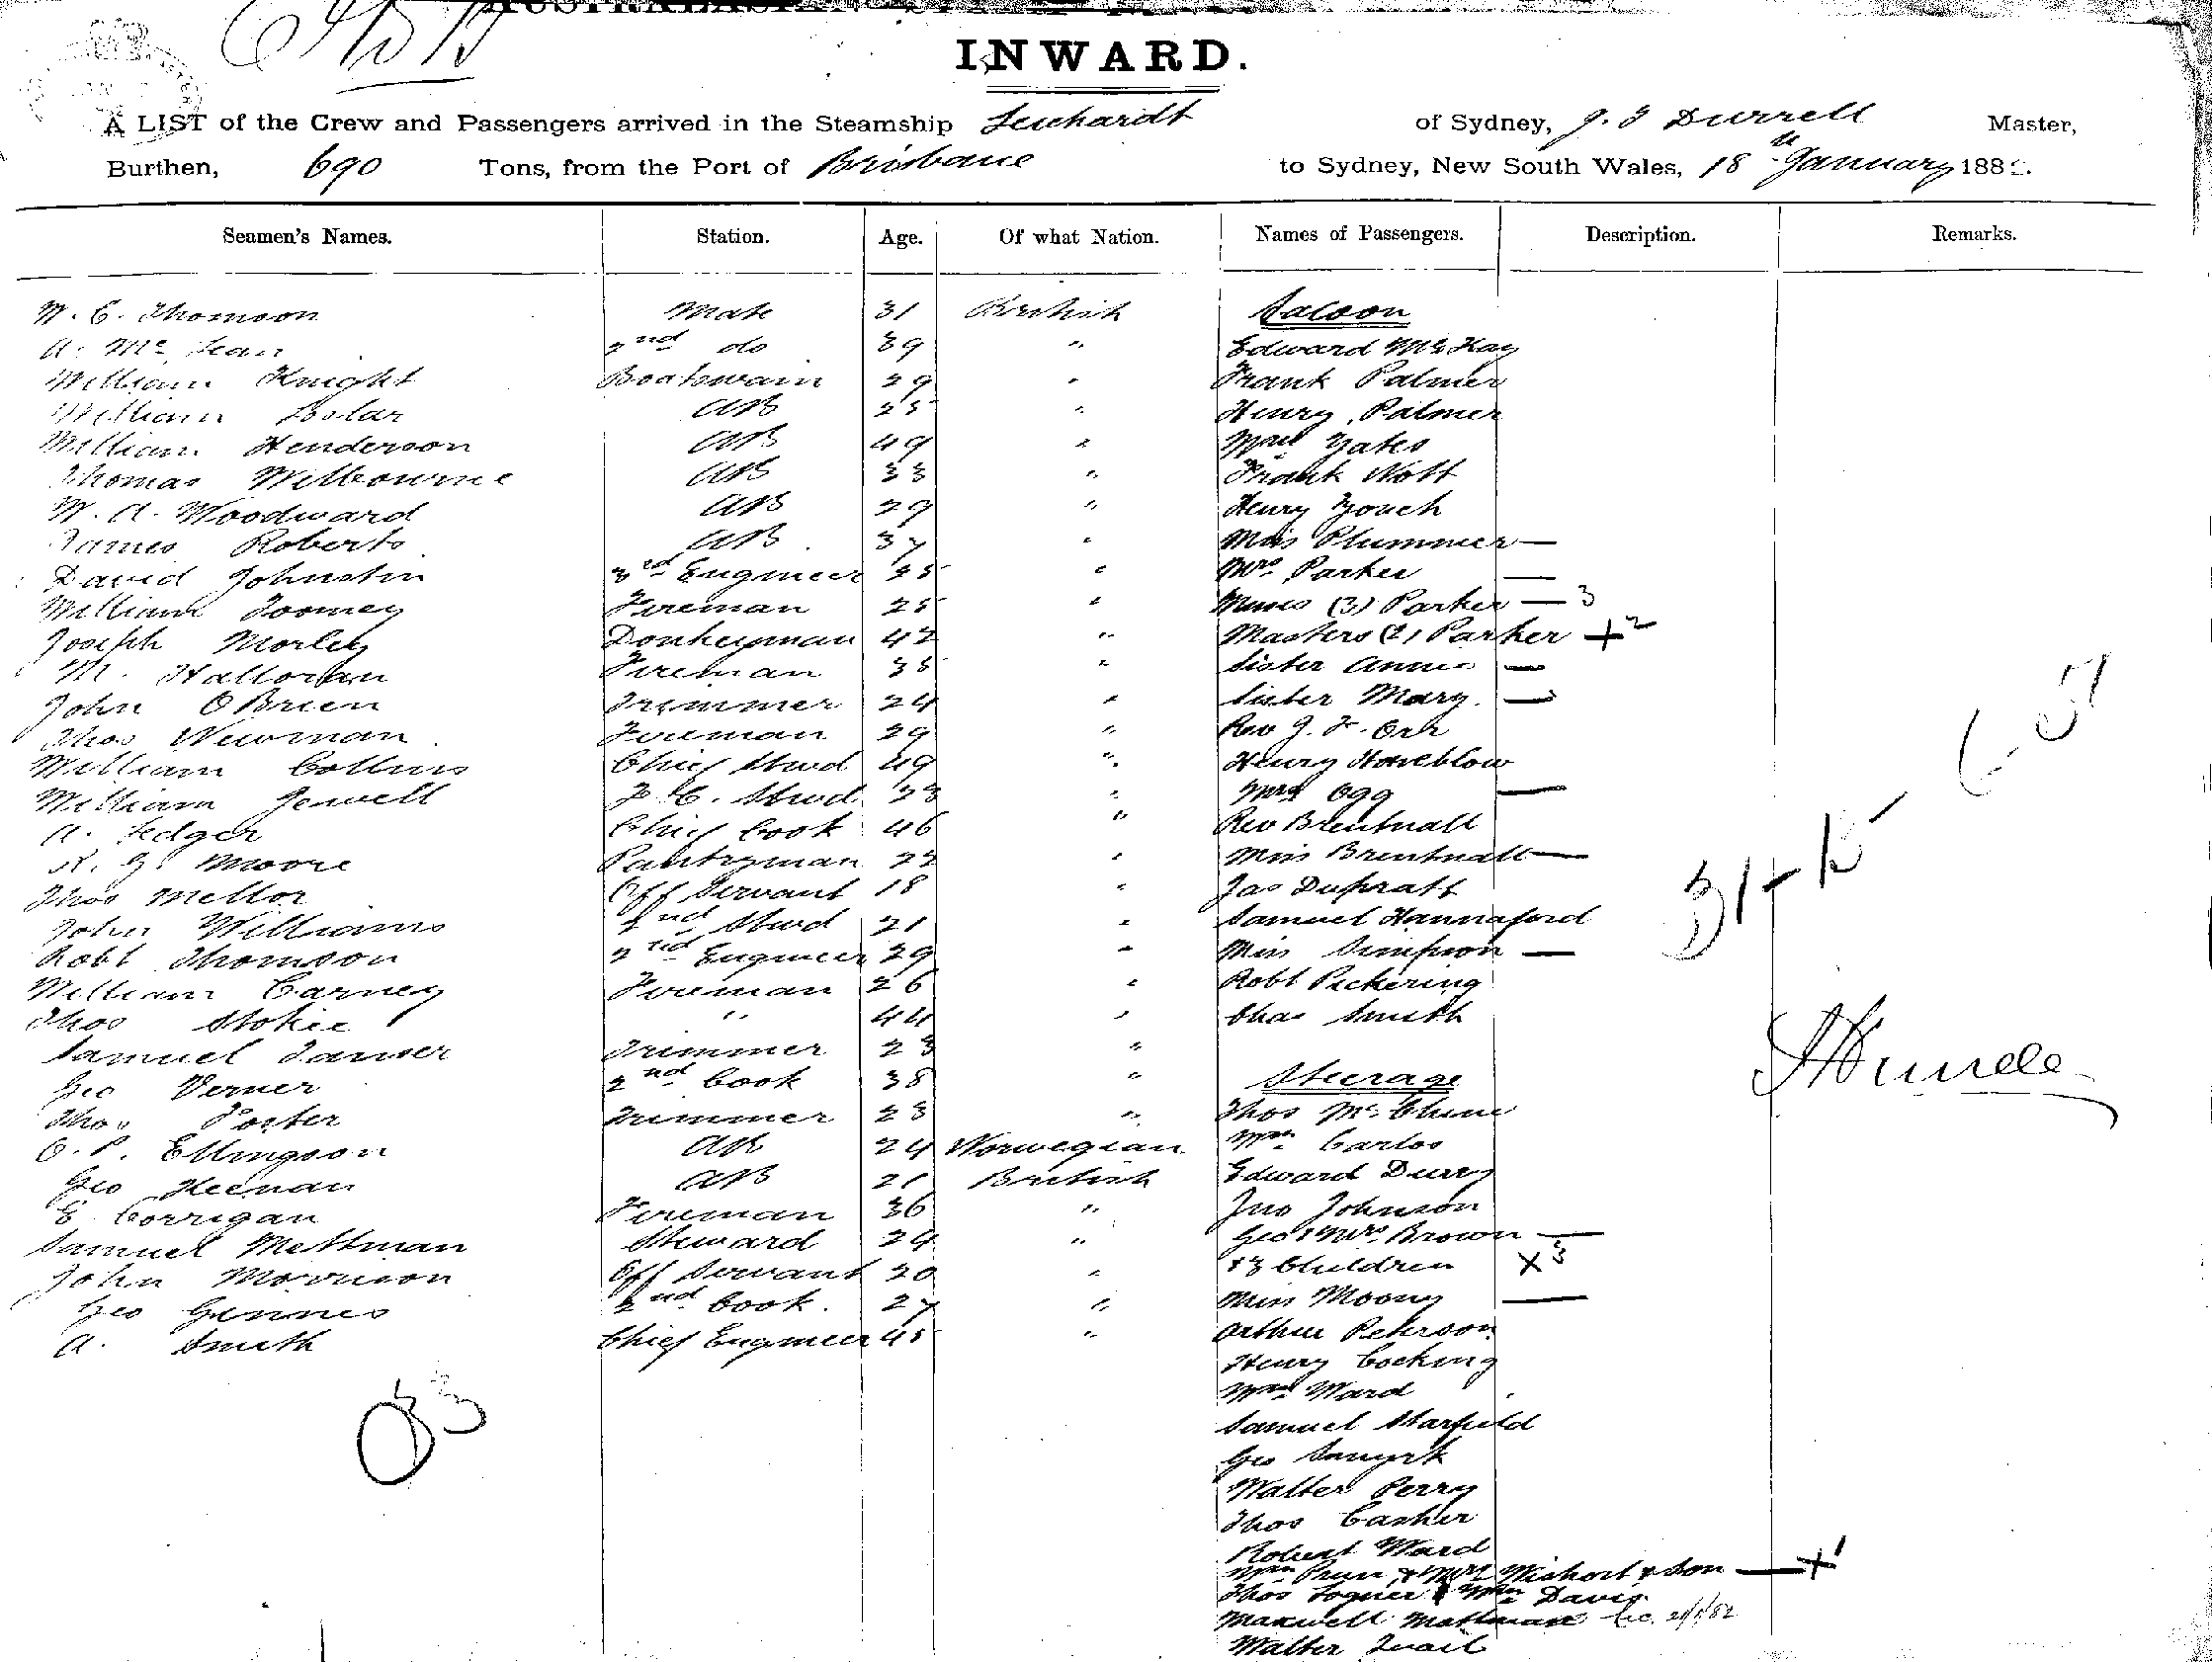 INWARD.
A LIST of the Crew and Passengers arrived in the Steamship Leichardt of Sydney, J. J Durrell Master,
Burthen, 690 Tons, from the Port of Brisbane to Sydney, New South Wales, 18th January 188
Seamen's Names. Station. Age. Of what Nation. Names of Passengers. Description. Remarks.
W. C. Thomson Mate 31 British Saloon
A. Mc Lean 2nd do 39 " Edward McKay
William Knight Boatswain 29 " Frank Palmer
William AB 25 " Henry Palmer
William Henderson AB 49 " Yates
Thomas Milbourne AB 33 " Frank Nott
W. A. Woodward AB 29 " Henry Zouch
James Roberts AB 37 " Miss Plummer —
David Johnston 3rd Engineer 35 " Mrs Parker —
William Toomey Fireman 25 " Misses (3) Parker — 3
Joseph Morley Donkeyman 42 " Masters (2) Parker + 2
M. Halloran Fireman 35 " Sister Annie —
John O'Brien Trimmer 24 " Sister Mary. —
Thos Newman Fireman 29 " Rev J. F. Orr
William Collins Chief Stwd 49 " Henry Honeblow
William Jewell F. C. Stwd 33 " Mrs Ogg —
A. Ledger Chief Cook 46 " Rev Brentnall
R. G. Moore Pantryman 22 " Miss Brentnall —
Thos Mellor Off Servant 18 " Jas Dupratt
John Williams 2nd Stwd 21 " Samuel Hannaford
Robt Thomson 2nd Engineer 29 " Miss Simpson —
William Carney Fireman 26 " Robt Pickering
Thos Stokie " 44 " Chas Smith
Samuel Tanser Trimmer 23 "
Geo Verner 2nd Cook 38 " Steerage
Thos Porter Trimmer 23 " Thos McClune
O. P. Ellingson AB 24 Norwegian Wm Carlos
Geo Keenan AB 21 British Edward Durry
E. Corrigan Fireman 36 " Jno Johnson
Samuel Mettman Steward 24 " Geo & Mrs Brown —
John Morrison Off Servant 20 " + 3 Children X 3
Geo Gennes 2nd Cook. 27 " Miss Moony —
A. Smith Chief Engineer 45 " Arthur Peterson
Henry Cocking
Ward
33 Samuel Starfield
Geo
Walter Perry
Thos Casher
Robert Ward
Wm Prun & Mrs Wishort & Son — + 1
Thos Togner & Wm Davis
Maxwell Mattman 21/1/82
Walter Quail